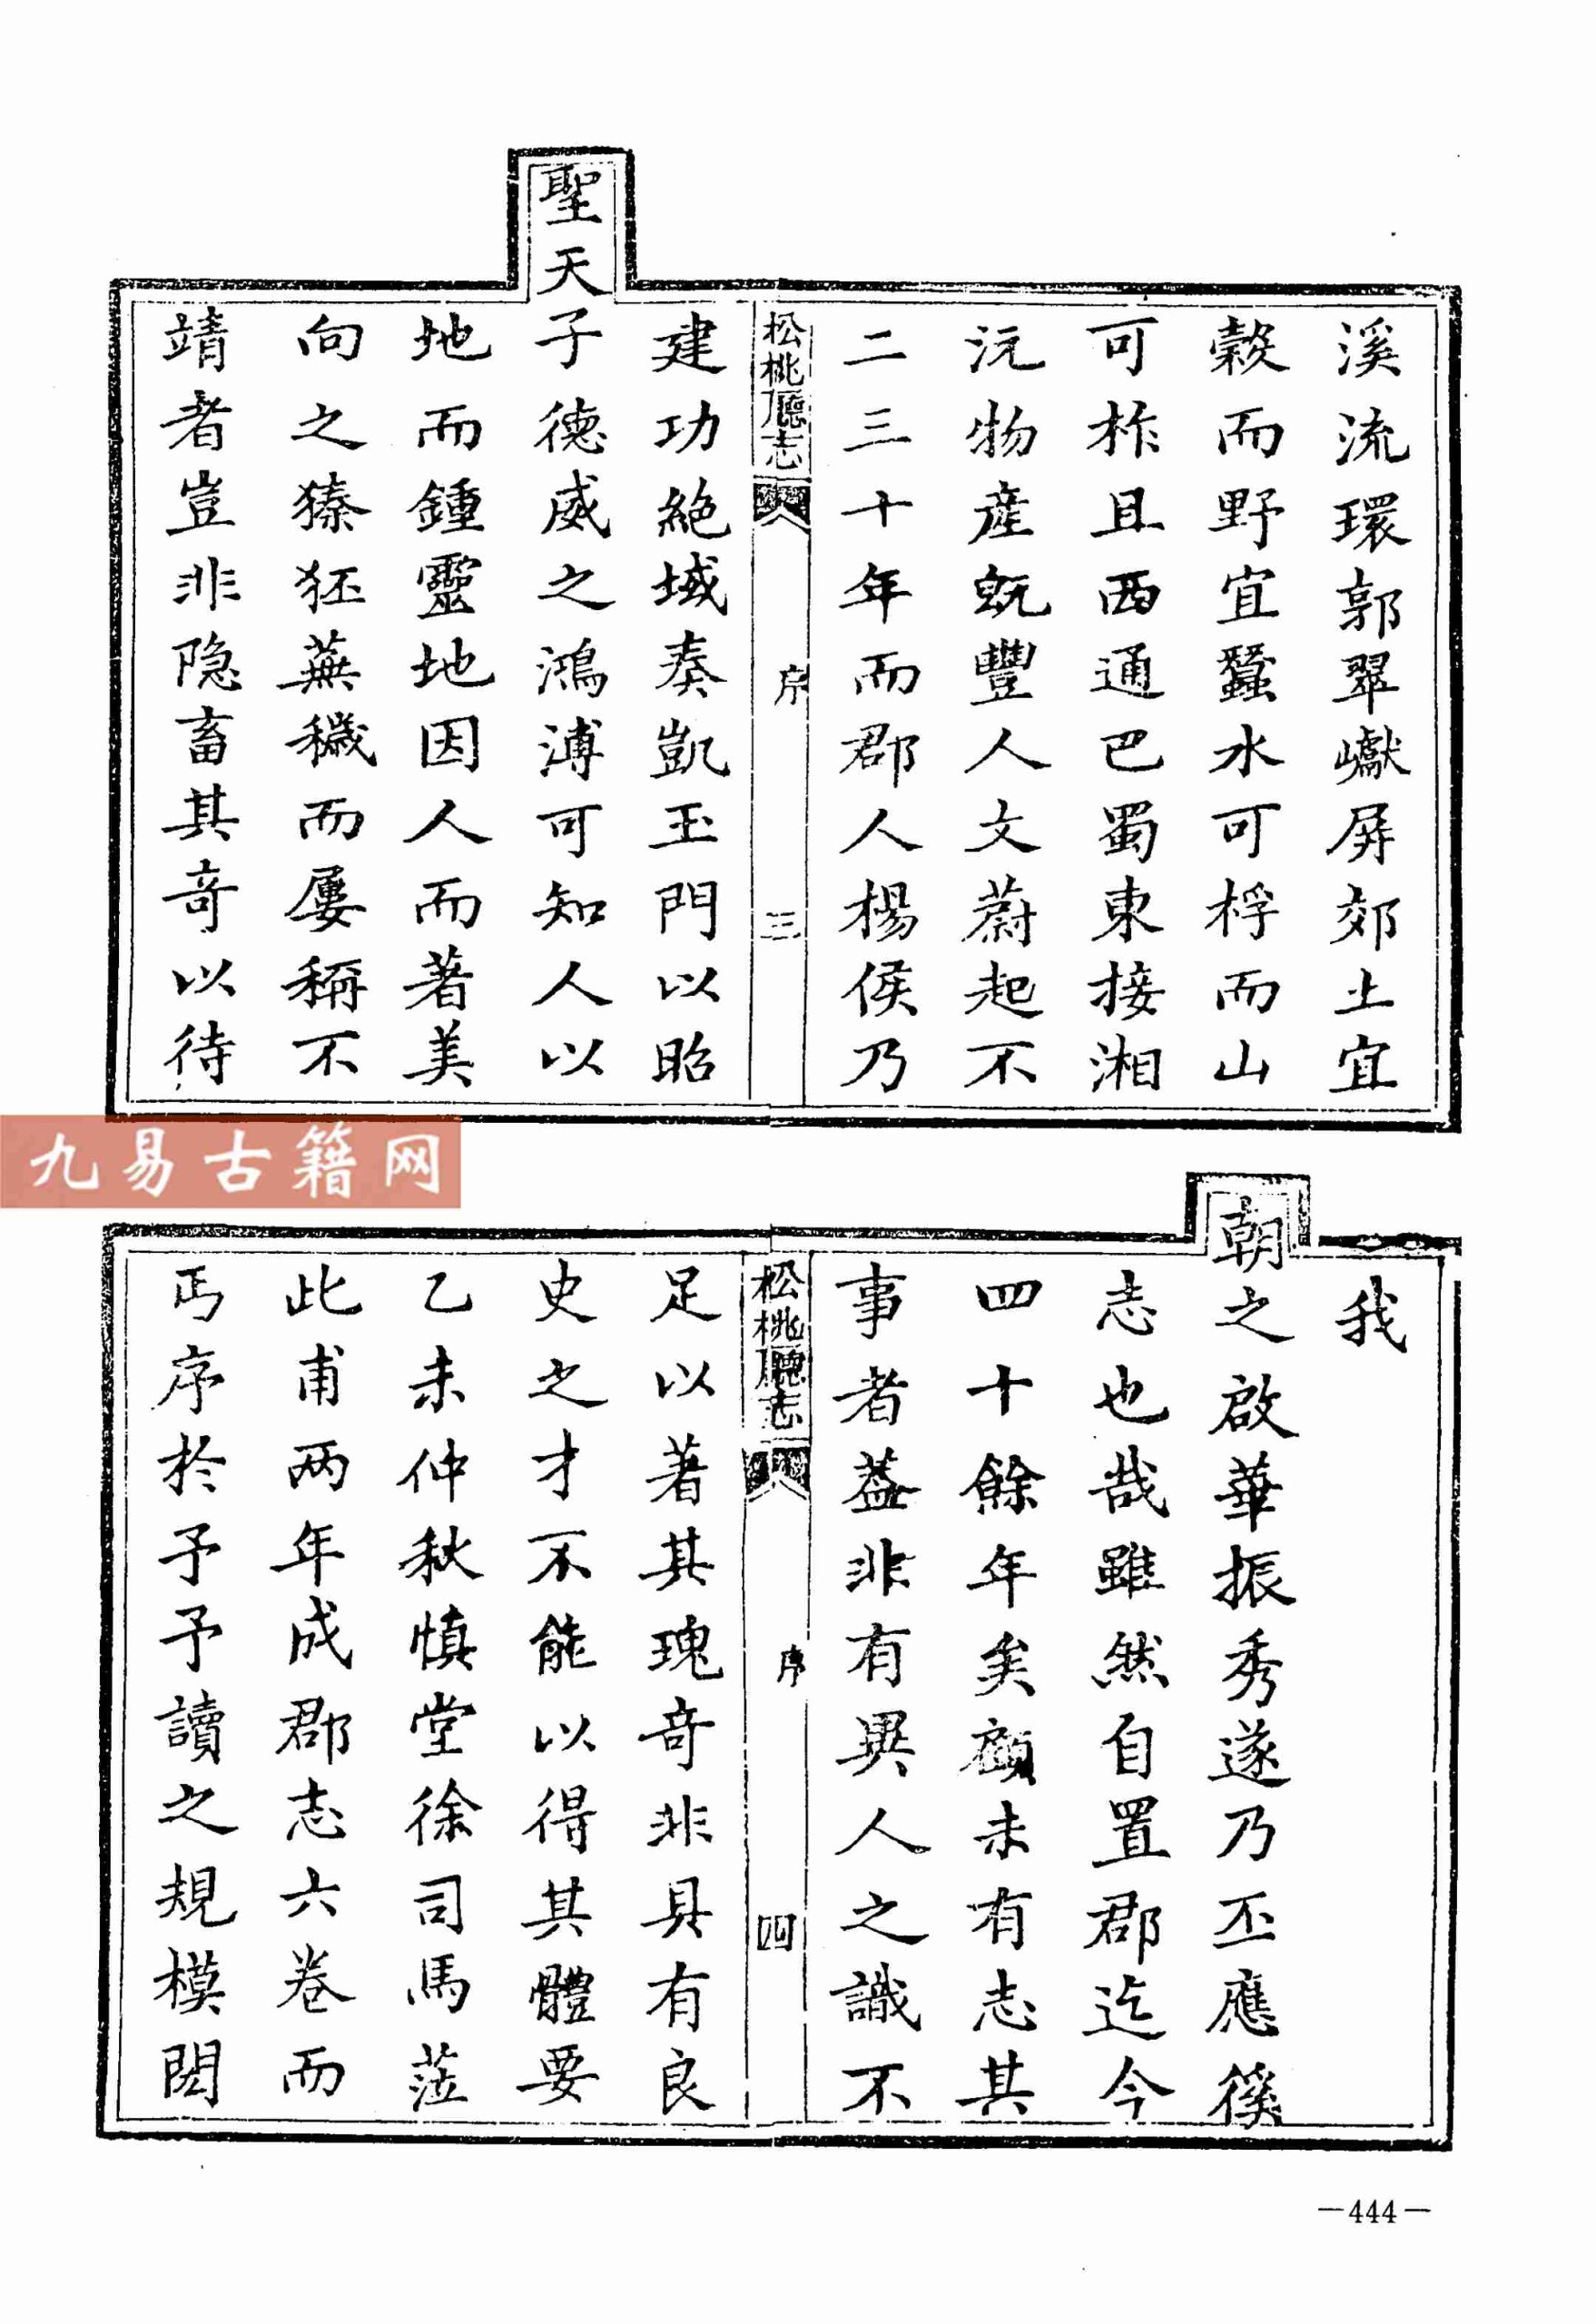 溪流環郭翠巘屏郊土宜
穀而野宜蠶水可桴而山
可柞且西通巴蜀東接湘
沅物產既豐人文蔚起不
二三十年而郡人楊侯乃
松桃廳志
序
三
建功絕域奏凱玉門以昭
聖天子德威之鴻溥可知人以
地而鍾靈地因人而著美
向之獉狉蕪穢而屢稱不
靖者豈非隐畜其竒以待
九易古籍网
我
朝之啟華振秀遂乃丕應徯
志也哉雖然自置郡迄今
四十餘年矣顧未有志其
事者葢非有異人之識不
松桃廳志
序
四
足以著其瑰竒非具有良
史之才不能以得其體要
乙未仲秋慎堂徐司馬蒞
此甫两年成郡志六卷而
丐序於予予讀之規模閎
—444—